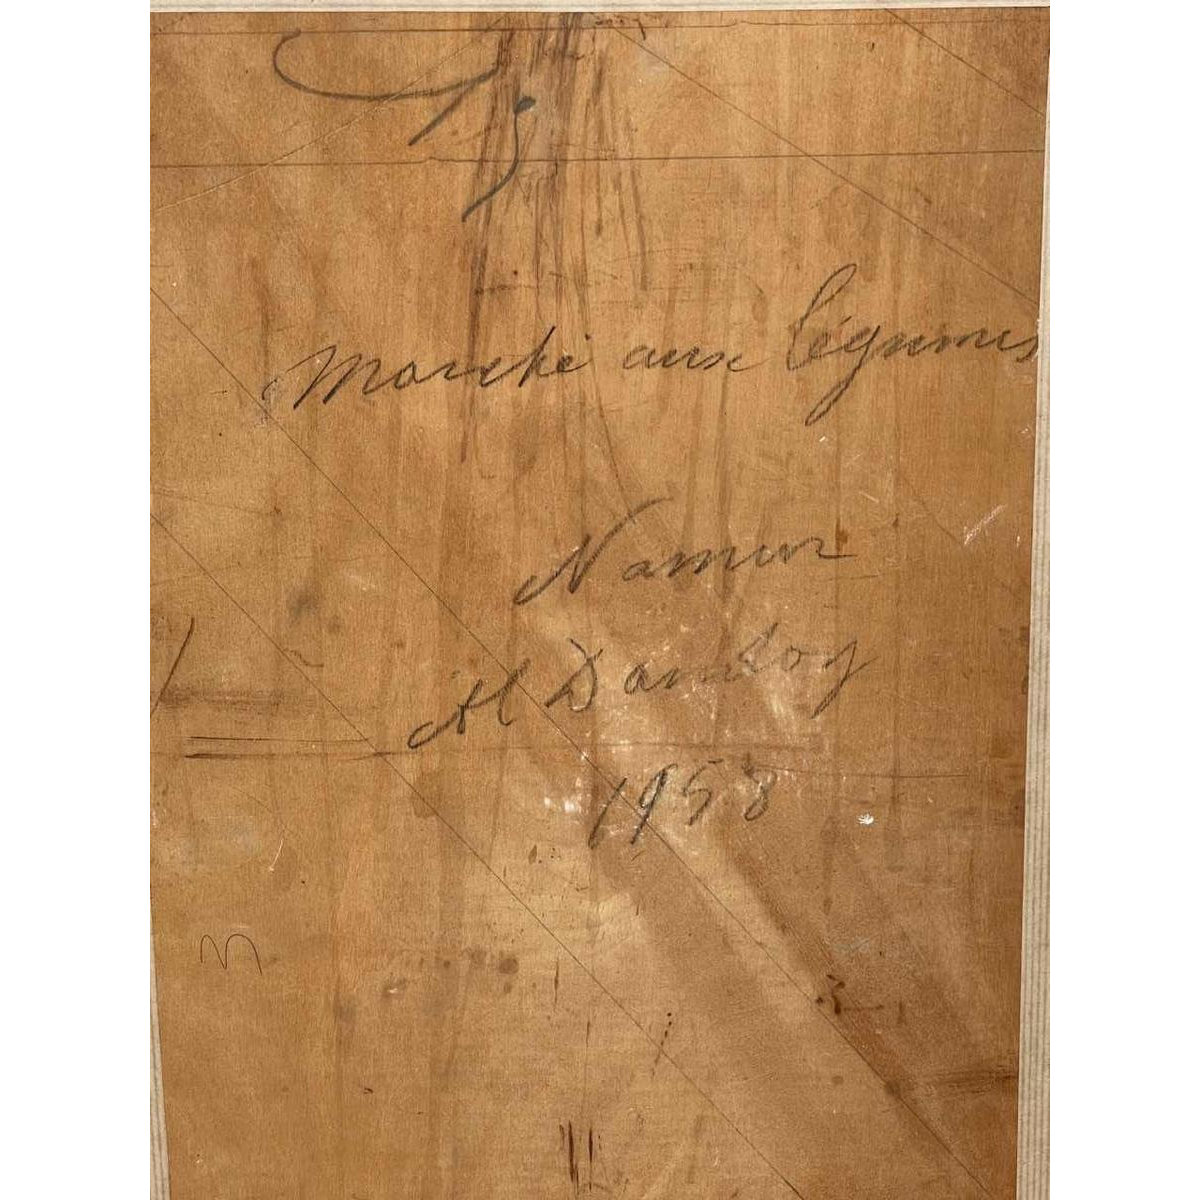 Marché aux légumes
Namur
Al Dandoy
1958
3